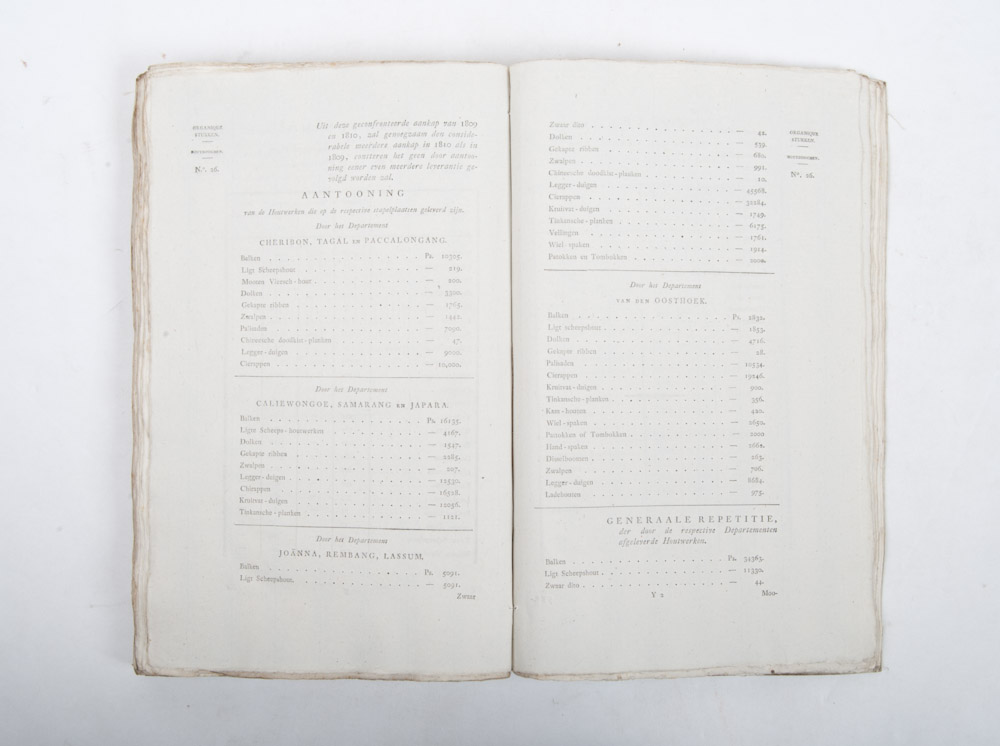 ORGANIQUE
STUKKEN.
HOUTBOSSCHEN.
N°. 16.
Uit deze geconfronteerde aankap van 1809
en 1810, zal genoegzaam den conside-
rabele meerdere aankap in 1810 als in
1809, consteren het geen door aantoo-
ning eener even meerdere leverantie ge-
volgd worden zal.
AANTOONING
van de Houtwerken die op de respective stapelplaatsen geleverd zijn.
Door het Departement
CHERIBON, TAGAL EN PACCALONGANG.
Balken Ps. 10305.
Ligt Scheepshout — 219.
Moesen Vlaesch-hout — 200.
Dolken — 3300.
Gekapte ribben — 1765.
Zwalpen — 1442.
Palissden — 7090.
Chineesche doodkist-planken — 47.
Legger-duigen — 9000.
Cierappen — 10,000.
Door het Departement
CALIEWONGOE, SAMARANG EN JAPARA.
Balken Ps. 16135.
Ligte Scheeps-houtwerken — 4167.
Dolken — 1547.
Gekapte ribben — 2285.
Zwalpen — 207.
Legger-duigen — 12530.
Chirappen — 16528.
Kruitvat-duigen — 12056.
Tinkansche-planken — 1121.
Door het Departement
JOÄNNA, REMBANG, LASSUM,
Balken Ps. 5091.
Ligt Scheepshout. — 5091.
Zwaar
Zwaar dito — 42.
Dolken — 539.
Gekapte ribben — 680.
Zwalpen — 991.
Chineesche doodkist-planken — 10.
Legger-duigen — 45568.
Cierappen — 32184.
Kruitvat-duigen — 1749.
Tinkansche-planken — 6175.
Vellingen — 1761.
Wiel spaken — 1914.
Patokken en Tombokken — 2000.
ORGANIQUE
STUKKEN.
HOUTBOSSCHEN.
N°. 16.
Door het Departement
VAN DEN OOSTHOEK.
Balken Ps. 2832.
Ligt scheepshout — 1853.
Dolken — 4716.
Gekapte ribben — 28.
Palissden — 10534.
Cierappen — 19246.
Kruitvat-duigen — 900.
Tinkansche-planken — 356.
Kam-houten — 420.
Wiel-spaken — 2650.
Pattokken of Tombokken — 2200
Hand-spaken — 2662.
Disselboomen — 283.
Zwalpen — 706.
Legger-duigen — 8684.
Ladeboomen — 973.
GENERAALE REPETITIE,
der door de respective Departementen
afgeleverde Houtwerken.
Balken Ps. 34363.
Ligt Scheepshout — 11330.
Zwaar dito — 44.
Y 2
Moo-